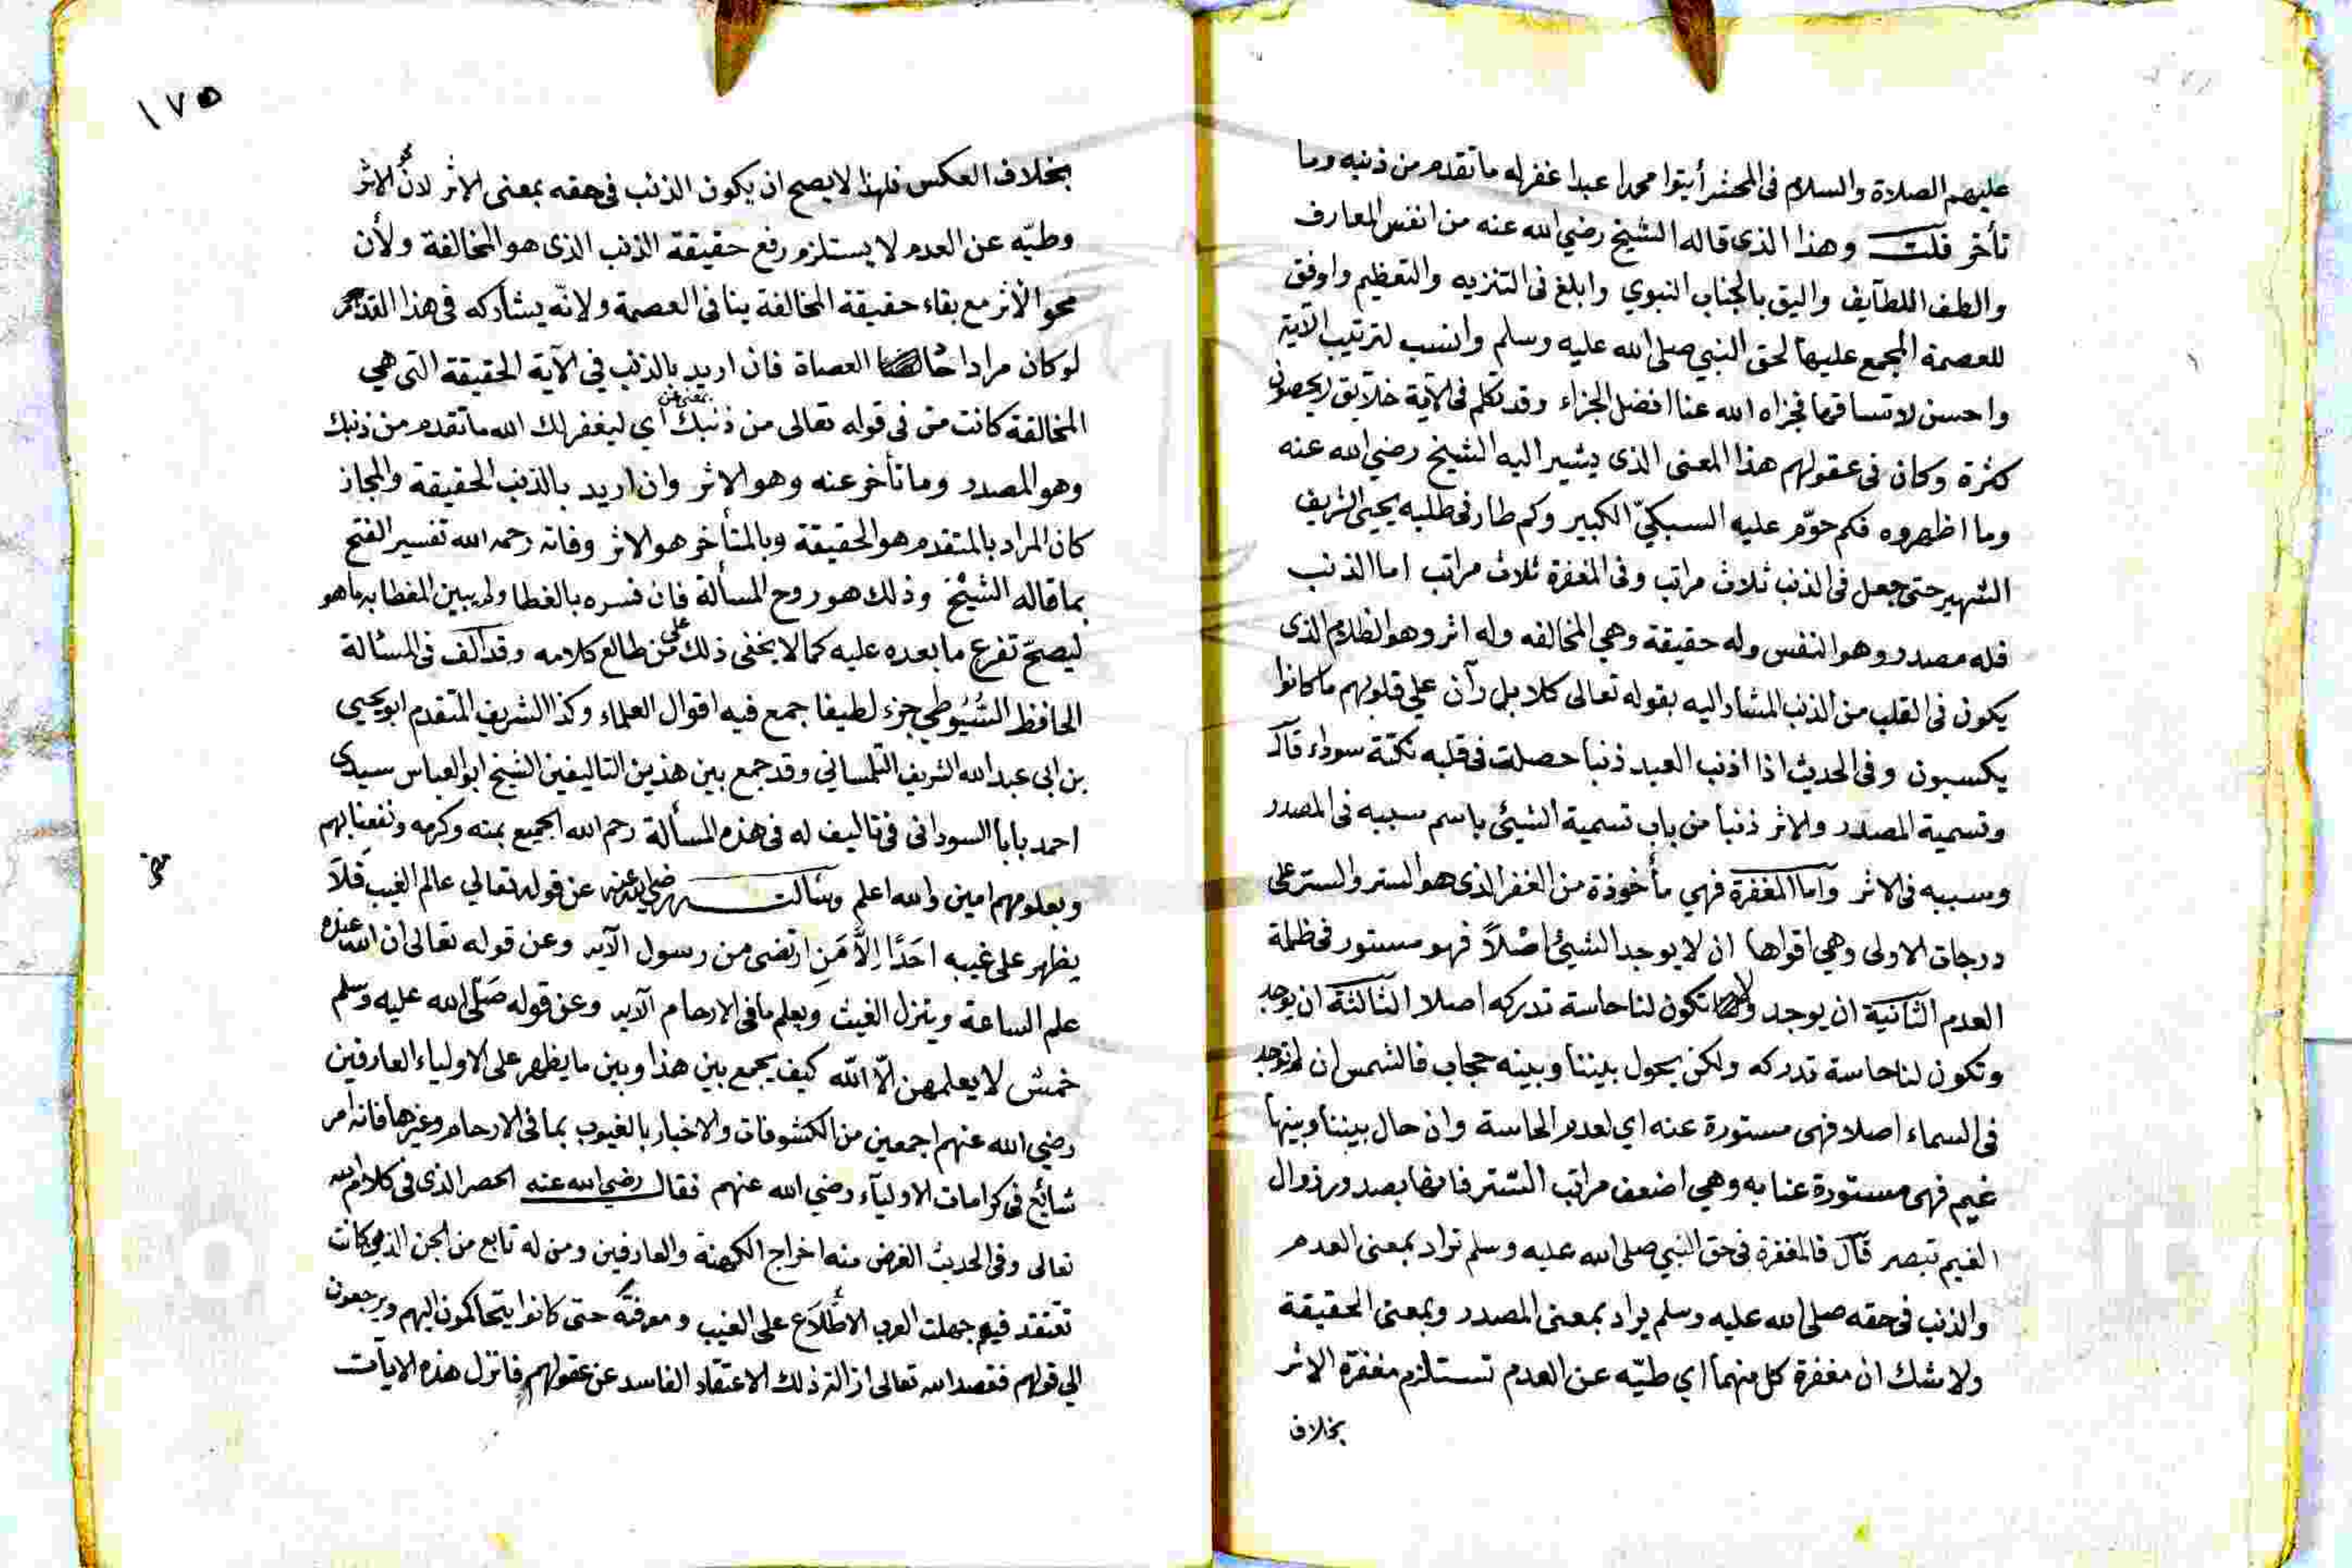 عليهم الصلاة والسلام فى المحشر أيتوا محمدا عبدا غفر له ما تقدم من ذنبه وما
تأخر قلت وهذا الذى قاله الشيخ رضي الله عنه من انفس المعارف
والطف اللطآيف واليق بالجناب النبوي وابلغ فى التنزيه والتعظيم واوفق
للعصمة المجمع عليها لحق النبي صلى الله عليه وسلم وانسب لترتيب الآية
واحسن لاتساقها فجزاه الله عنا افضل الجزاء وقد تكلم فى الآية خلآيق لا يحصون
كثرة وكان فى عقولهم هذا المعنى الذى يشير اليه الشيخ رضي الله عنه
وما اظهروه فكم حوّم عليه السبكيّ الكبير وكم طار فى طلبه يحيى الشريف
الشهير حتى جعل فى الذنب ثلاث مراتب وفى المغفرة ثلاث مراتب اما الذنب
فله مصدر وهو النفس وله حقيقة وهي المخالفه وله اثر وهو الظلام الذى
يكون فى القلب من الذنب المشار اليه بقوله تعالى كلا بل رآن علي قلوبهم ما كانوا
يكسبون وفى الحديث اذا اذنب العبد ذنبا حصلت فى قلبه نكتة سوداء قال
وتسمية المصدر والاثر ذنبا من باب تسمية الشيئ باسم سببه فى المصدر
وسببه فى الاثر وآما المغفرة فهي مأخوذة من الغفر الذى هو الستر والستر على
درجات الاولى وهي اقواها ان لا يوجد الشيئ اصْلاً فهو مستور فى ظلمة
العدم الثآنية ان يوجد ولا تكون لنا حاسة تدركه اصلا الثآلثة ان يوجد
وتكون لنا حاسة تدركه ولكن يحول بيننا وبينه حجاب فالشمس ان لم توجد
فى السماء اصلا فهى مستورة عنه اي لعدم الحاسة وان حال بيننا وبينها
غيم فهى مستورة عنا به وهي اضعف مراتب السّتر فانها بصدور زوال
الغيم تبصر قال فالمغفرة فى حق النبي صلى الله عليه وسلم تراد بمعنى العدم
والذنب فى حقه صلى الله عليه وسلم يراد بمعنى المصدر وبمعنى الحقيقة
ولا شك ان مغفرة كل منهما اي طيّه عن العدم تستلزم مغفرة الاثر
بخلاف
١٧٥
بخلاف العكس فلهذا لا يصح ان يكون الذنب فى حقه بمعنى الاثر لانّ محو الاثر
وطيّه عن العدم لا يستلزم رفع حقيقة الذنب الذى هو المخالفة ولأن
محو الأثر مع بقاء حقيقة المخالفة ينافى العصمة ولانّه يشاركه فى هذا القدر
لو كان مرادا العصاة فان اريد بالذنب في الآية الحقيقة التى هي
المخالفة كانت من فى قوله تعالى من ذنبك بمعنى عن أي ليغفر لك الله ما تقدم من ذنبك
وهو المصدر وما تأخر عنه وهو الاثر وان اريد بالذنب الحقيقة والمجاز
كان المراد بالمتقدم هو الحقيقة وبالمتأخر هو الاثر وفاته رحمه الله تفسير الفتح
بما قاله الشيْخ وذلك هو روح المسألة فان فسره بالغطا ولم يبين المغطا به ما هو
ليصحّ تفرع ما بعده عليه كما لا يخفى ذلك على من طالع كلامه وقد الّف فى المسئالة
الحافظ السُّيُوطي جزء لطيفا جمع فيه اقوال العلماء وكذا الشريف المتقدم ابو يحيى
بن ابى عبد الله الشريف التلمساني وقد جمع بين هذين التاليفين الشيخ ابو العباس سيدى
احمد بابا السودانى فى تاليف له فى هذه المسألة رحم الله الجميع بمنه وكرمه ونفعنا بهم
وبعلومهم امين والله اعلم وسالته رضي الله عنه عن قوله تعالي عالم الغيب فلاَ
يظهر على غيبه احَدًا اِلَّا مَنِ ارتضى من رسول الآيه وعن قوله تعالى ان الله عنده
علم الساعة وينزل الغيث ويعلم ما فى الارحام الآيه وعن قوله صَلّى الله عليه وسلم
خمسٌ لا يعلمهن الاّ اللّه كيف يجمع بين هذا وبين ما يظهر على الاولياء العارفين
رضي الله عنهم اجمعين من الكشوفات والاخبار بالغيوب بما فى الارحام وغيرها فانه امر
شائع فى كرامات الاوليآء رضي الله عنهم فقال رضي الله عنه الحصر الذى فى كلام الله
تعالى وفى الحديث الغرض منه اخراج الكهنة والعارفين ومن له تابع من الجن الذي كانت
تعتقد فيهم جهلت العرب الاطِّلَاَع على الغيب ومعرفته حتى كانوا يتحاكمون اليهم ويرجعون
الي قولهم فقصد الله تعالى ازالة ذلك الاعتقاد الفاسد عن عقولهم فانزل هذه الايآت